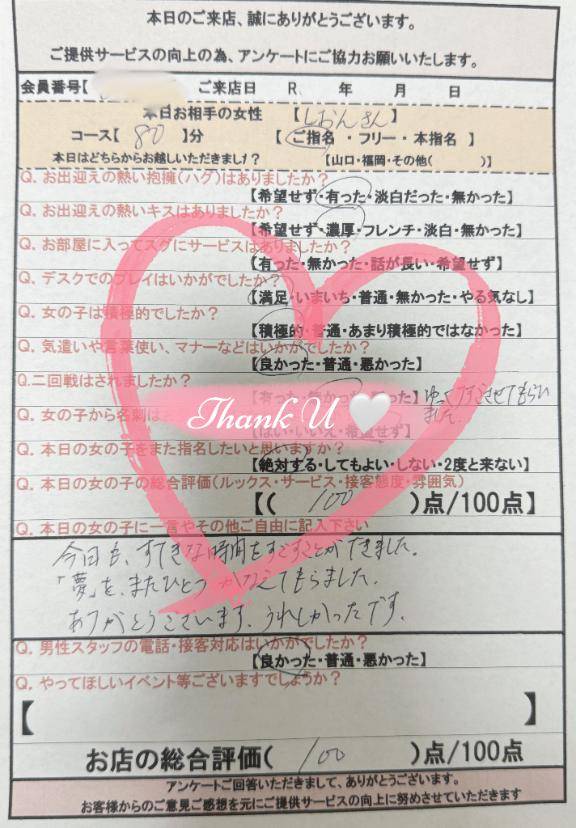 本日のご来店、誠にありがとうございます。
ご提供サービスの向上の為、アンケートにご協力お願いいたします。
会員番号【 ご来店日 R. 年 月 日
本日お相手の女性 【しおんさん】
コース【 80 】分 【 ご指名 ・ フリー ・ 本指名 】
本日はどちらからお越しいただきました? 【山口・福岡・その他( )】
Q. お出迎えの熱い抱擁(ハグ)はありましたか?
【希望せず・有った・淡白だった・無かった】
Q. お出迎えの熱いキスはありましたか?
【希望せず・濃厚・フレンチ・淡白・無かった】
Q. お部屋に入ってスグにサービスはありましたか?
【有った・無かった・話が長い・希望せず】
Q. デスクでのプレイはいかがでしたか?
【満足・いまいち・普通・無かった・やる気なし】
Q. 女の子は積極的でしたか?
【積極的・普通・あまり積極的ではなかった】
Q. 気遣いや言葉使い、マナーなどはいかがでしたか?
【良かった・普通・悪かった】
Q.二回戦はされましたか?
【有った・無かった
ゆっくりさせてもらい
ました
Q. 女の子から名刺は
Thank U
【はい・いいえ・希望せず】
Q. 本日の女の子をまた指名したいと思いますか?
【絶対する・してもよい・しない・2度と来ない】
Q. 本日の女の子の総合評価(ルックス・サービス・接客態度・雰囲気)
【( 100 )点/100点】
Q. 本日の女の子に一言やその他ご自由に記入下さい
今回も、すてきな時間をすごすことができました。
「夢」を、またひとつ かなえてもらました.
ありがとうございます、うれしかったです.
Q. 男性スタッフの電話・接客対応はいかがでしたか?
【良かった・普通・悪かった】
Q. やってほしいイベント等ございますでしょうか?
【 】
お店の総合評価( 100 )点/100点
アンケートご回答いただきまして、ありがとうございます。
お客様からのご意見ご感想を元にご提供サービスの向上に努めさせていただきます